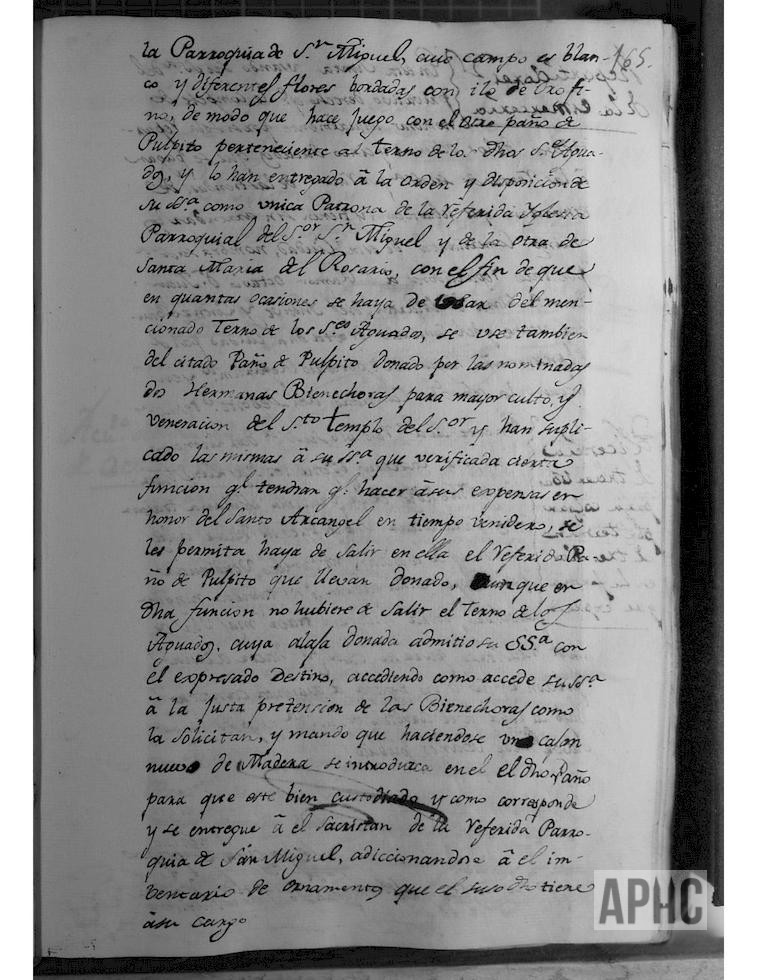 165.
la Parroquia de S.ʳ Miguel, cuio campo es blan-
co y diferentes flores bordadas con ilo de Oro fi-
no, de modo que hace juego con el otro paño de
Pulpito perteneciente al terno de los dhos S.ᵉˢ Agua-
dos, y lo han entregado â la orden y disposicion de
su ssª, como unica Patrona de la referida Yglesia
Parroquial del S.ᵒʳ S.ⁿ Miguel y de la otra de
Santa Maria del Rosario, con el fin de que
en quantas ocasiones se haya de usar del men-
cionado Terno de los S.ᵉˢ Aguados, se use tambien
del citado Paño de Pulpito donado por las nominadas
dos Hermanas Bienechoras para mayor culto, y
veneracion del S.ᵗᵒ templo del S.ᵒʳ y han supli-
cado las mismas â su ssª que verificada cierta
funcion q.ᵉ tendran q.ᵉ hacer â sus expensas en
honor del Santo Arcangel en tiempo venidero, se
les permita haya de salir en ella el referido Pa-
ño de Pulpito que llevan donado, aunque en
dha funcion no hubiere de salir el Terno de los
Aguados, cuya alaja donada admitio su SS.ª con
el expresado Destino, accediendo como accede su ssª
â la justa pretension de las Bienechoras como
la solicitan, y mando que haciendose un cajon
nuevo de Madera se introduzca en el el dho Paño
para que este bien custodiado y como corresponde
y se entregue â el Sacristan de la referida Parro-
quia de San Miguel, adiccionandose â el im-
bentario de ornamentos que el suso dho tiene
â su cargo
APHC